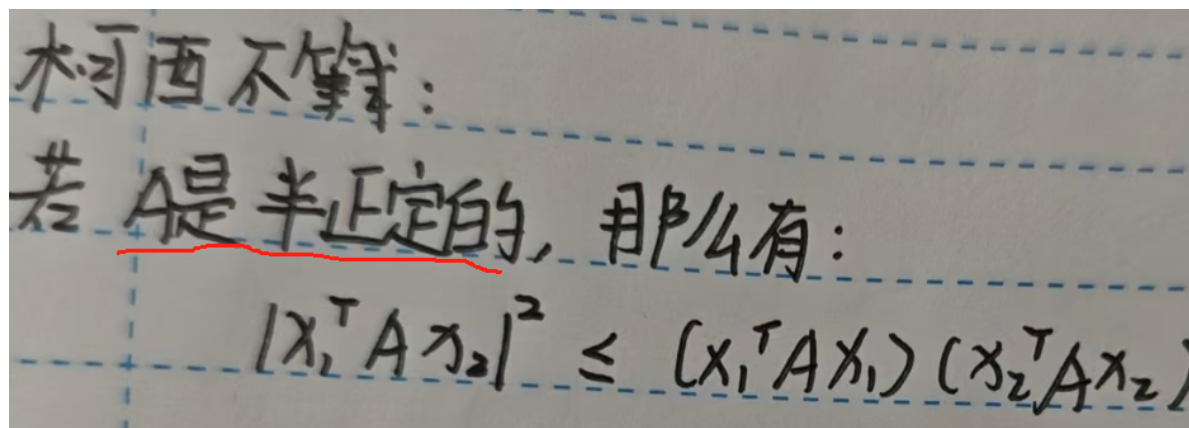 柯西不等式:
若 A是半正定的, 那么有:
|x₁ᵀAx₂|² ≤ (x₁ᵀAx₁)(x₂ᵀAx₂)